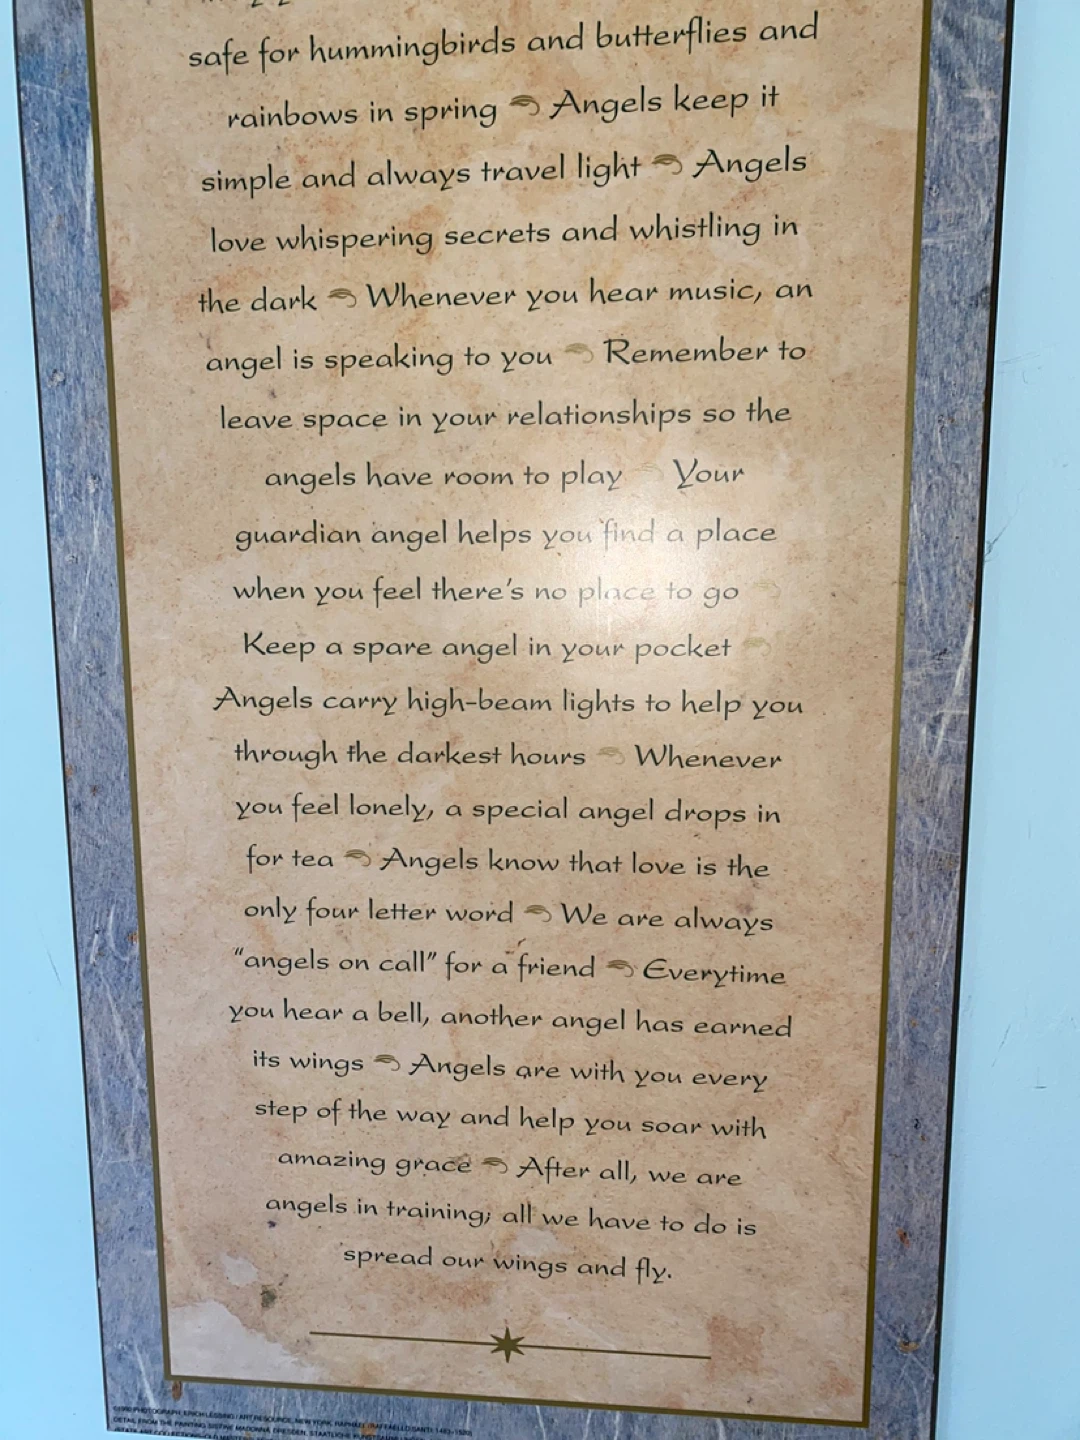 safe for hummingbirds and butterflies and
rainbows in spring Angels keep it
simple and always travel light Angels
love whispering secrets and whistling in
the dark Whenever you hear music, an
angel is speaking to you Remember to
leave space in your relationships so the
angels have room to play Your
guardian angel helps you find a place
when you feel there's no place to go
Keep a spare angel in your pocket
Angels carry high-beam lights to help you
through the darkest hours Whenever
you feel lonely, a special angel drops in
for tea Angels know that love is the
only four letter word We are always
"angels on call" for a friend Everytime
you hear a bell, another angel has earned
its wings Angels are with you every
step of the way and help you soar with
amazing grace After all, we are
angels in training; all we have to do is
spread our wings and fly.
PHOTOGRAPH, ERICH LESSING / ART RESOURCE, NEW YORK, RAPHAEL (RAFFAELLO SANTI, 1483-1520)
DETAIL FROM THE PAINTING SISTINE MADONNA DRESDEN, STAATLICHE